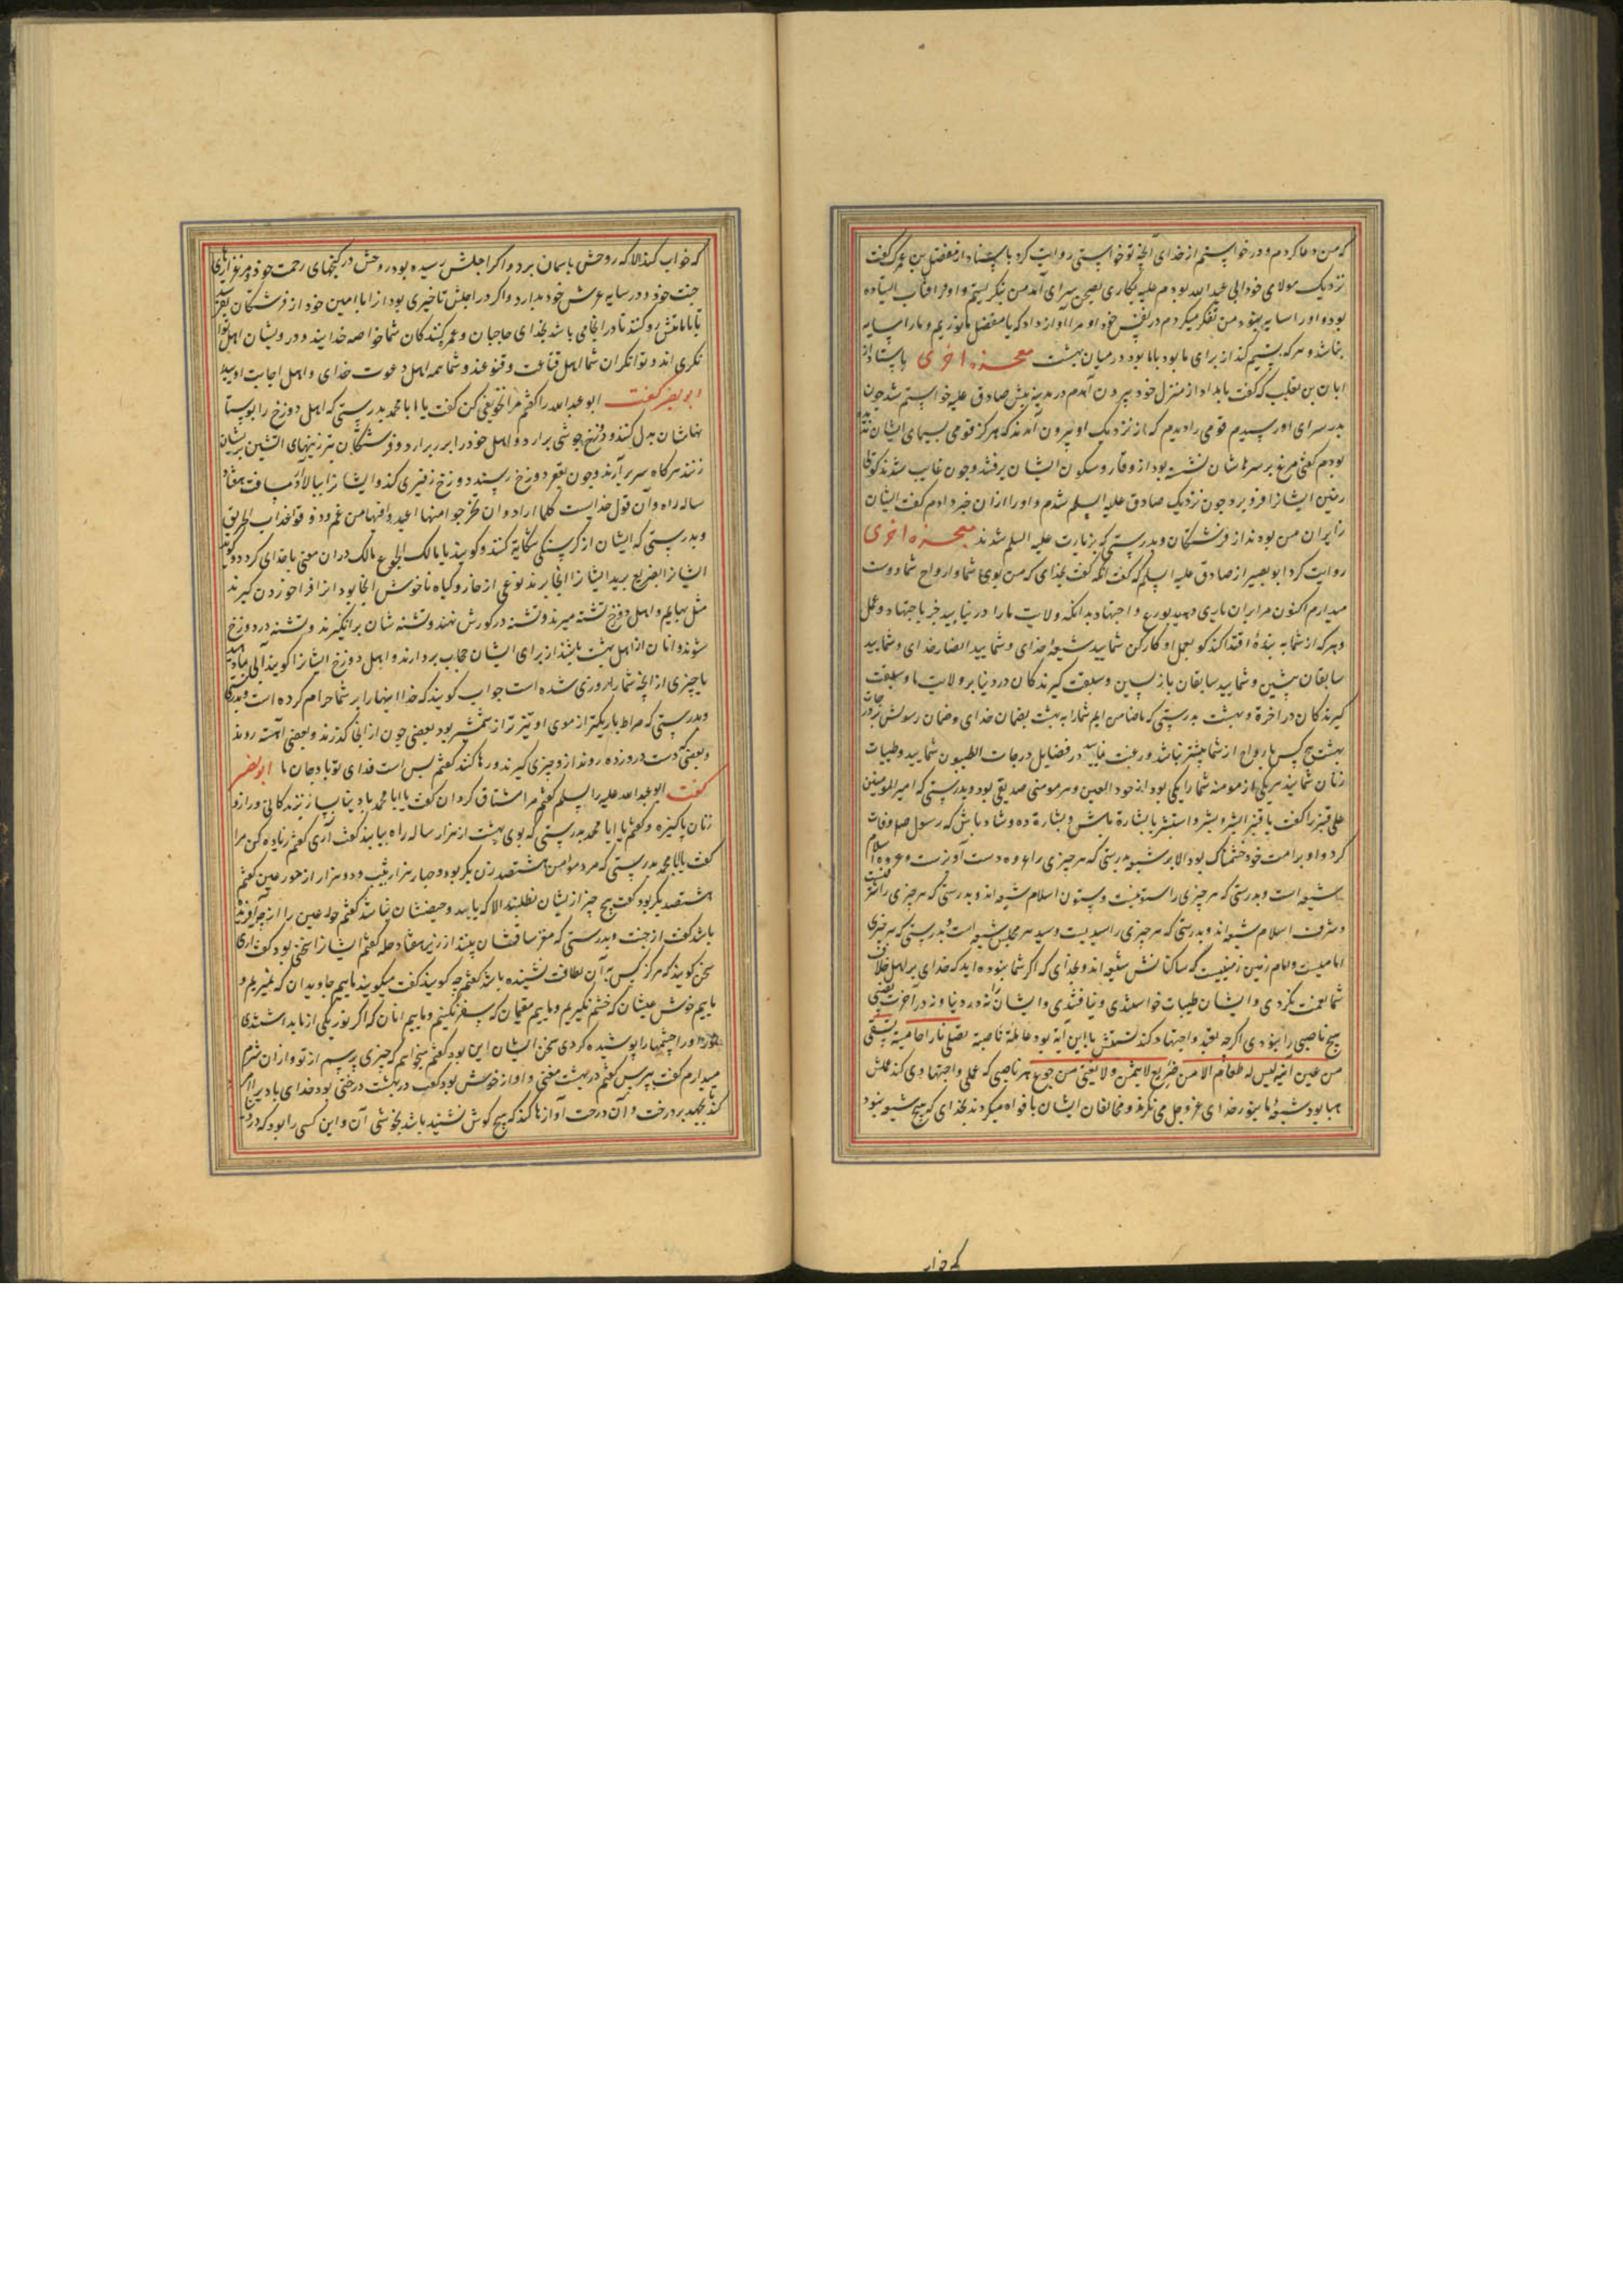 که من دعا کردم و درخواستم از خدای آنچه تو خواستی روایت کرد باسناد از مفضل بن عمر که گفت
نزدیک مولای خود ابی عبد الله بودم علیه بکاری بصحن سرای آمد من نگریستم و او در آفتاب ایستاده
بود و او را سایه نبود من تفکر میکردم در نفس خود او مرا آواز داد که یا مفضل ما نوریم و ما را سایه
نباشد و هر که از برای ما بود با ما بود در میان بهشت معجزه اخری باسناد از
ابان بن تغلب که گفت بامداد از منزل خود بیرون آمدم در مدینه پیش صادق علیه خواستم شد چون
بدر سرای او رسیدم قومی را دیدم که از نزدیک او بیرون آمدند که هرگز قومی بسیمای ایشان ندیده
بودم گفتی مرغ بر سرهاشان نشسته بود از وقار و سکون ایشان برفتند و چون غایب شدند گوئی
زمین ایشانرا فرو برد چون نزدیک صادق علیه السلم شدم و او را ازان خبر دادم گفت ایشان
زایران من بودند از فرشتگان و بدرستی که بزیارت علیه السلم شدند معجزه اخری
روایت کرد ابو بصیر از صادق علیه السلم که گفت که گفت بخدای که من بوی شما و ارواح شما دوست
میدارم اکنون مرا بران یاری دهید بورع و اجتهاد بدانکه ولایت ما را در نیابید جز باجتهاد و عمل
و هر که از شما به بندهٔ اقتدا کند کو بعمل او کار کن شمایید شیعه خدای و شمایید انصار خدای و شمایید
سابقان پیشین و شمایید سابقان بازپسین و سبقت گیرندگان در دنیا بر ولایت ما و سبقت
گیرندگان در آخرة و بهشت بدرستی که ما ضامن ایم شما را به بهشت بضمان خدای و ضمان رسولش در درجات
بهشت هیچ کس بارواح از شما بیشتر نباشد و رغبت نمایید در فضایل درجات الطیبون شمایید و طیبات
زنان شمایند هر یکی از مومنه شما را یکی بود از حور العین و هر مومنی صدیقی بود و بدرستی که امیر المومنین
علی قنبر را گفت یا قنبر ابشر و بشر و استبشر یا بشارة باش و بشارة ده و شاد باش که رسول صلوة وفات
کرد و او بر امت خود خشمناک بود الا بر شیعه بدرستی که هر چیزی را عروه و دست آویزست و عروه اسلام
شیعه است و بدرستی که هر چیزی را ستونیست و ستون اسلام شیعه اند و بدرستی که هر چیزی را شرفیست
و شرف اسلام شیعه اند و بدرستی که هر چیزی را سیدیست و سید هر مجلس شیعه است و بدرستی که هر چیزی را
امامیست و امام زمین زمینیست که ساکنانش شیعه اند و بخدای که اگر شما نبوده اید که خدای بر اهل خلاف
شما نعمت نکردی و ایشان طیبات خواستندی و نیافتندی و ایشان را نه در دنیا و نه در آخرت نصیبی
هیچ ناصبی را نبودی اگرچه تعبد و اجتهاد کند نسبتش باین آیه بود عاملة ناصبة تصلی نارا حامیة تسقی
من عین آنیه لیس له طعام الا من ضریع لا یسمن و لا یغنی من جوع هر ناصبی که عملی و اجتهادی کند عملش
هبا بود شیعهٔ ما بنور خدای عز و جل می نگرند و مخالفان ایشان بافواه میگردند بخدای که هیچ شیعه نبود
که خواب
که خواب کند الا که روحش باسمان برد و اگر اجلش رسیده بود روحش در گنجهای رحمت خود و مرغزارهای
جنت خود و در سایه عرش خود بدارد و اگر در اجلش تاخیری بود از ابا امین خود از فرشتگان بفرستد
تا باتنش رد کنند تا در انجا می باشد بخدای حاجیان و عمره کنندگان شما خاصه خدایند و درویشان اهل
توانگری اند و توانگران شما اهل قناعت و قنوعند و شما همه اهل دعوت خدای و اهل اجابت اویید
ابو بصیر گفت ابو عبد الله را گفتم مرا تخویفی کن گفت یا ابا محمد بدرستی که اهل دوزخ را پوستا
نهاشان بدل کنند و دوزخ جوشی برارد و اهل خود را بر برارد و فرشتگان بتبرزینهای آتشین بریشان
زنند هرگاه سر برآرند و چون بقعر دوزخ رسند دوزخ زفیری کند و ایشانرا ببالا آرد مسافت هفتاد
ساله راه و آن قول خدایست کلما ارادوا ان یخرجوا منها اعیدوا فیها من غم و ذوقوا عذاب الحریق
و بدرستی که ایشان از گرسنگی شکایة کنند و گویند یا مالک الجوع مالک دران معنی با خدای گردد گوید
ایشانرا بضریع برید ایشانرا انجا برند نوعی از خار و گیاه ناخوش انجا بود ازان فرا خوردن گیرند
مثل بهایم و اهل دوزخ تشنه میرند و تشنه در گورش نهند و تشنه شان برانگیزند و تشنه در دوزخ
شوند و انان از اهل بهشت باشند از برای ایشان حجاب بردارند و اهل دوزخ ایشانرا گویند آبی بما دهید
یا چیزی از انچه شما را روزی شده است جواب گویند که خدا اینها را بر شما حرام کرده است
و بدرستی که صراط باریکتر از موی و تیزتر از شمشیر بود بعضی چون از انجا گذرند و بعضی آهسته روند
و بعضی دست در وزده روند از و چیزی گیرند و رها کنند گفتم بس است فدای تو باد جان ما ابو بصیر
گفت ابو عبد الله علیه السلم را گفتم مرا مشتاق گردان گفت یا ابا محمد
زنان پاکیزه و گفتم یا ابا محمد بدرستی که بوی بهشت از هزار ساله راه بیابند گفت آری گفتم زیاده کن مرا
گفت یا ابا محمد بدرستی که مرد مومن را هشتصد زن بکر بود و چهار هزار ثیب و دو هزار از حور عین گفتم
هشتصد بکر بود گفت هیچ چیز از یشان نطلبند الا که یابند و حیضشان نباشد گفتم حور عین را از چه آفریده
باشد گفت از جنت و بدرستی که مغز ساقشان بینند از زیر هفتاد حله گفتم ایشانرا سخنی بود گفت آری
سخن گویند که هرگز کس به آن لطافت نشنیده باشد گفتم چه گویند گفت میگویند ماییم جاویدان که نمیریم و
ماییم خوش عیشان که خشم نگیریم و ماییم مقیمان که سفر نگزینیم و ماییم انان که اگر نور یکی از ما بداشتندی
نور او چشمها را پوشیده کردی سخن ایشان این بود گفتم میخواهم که چیزی پرسم از تو و ازان شرم
میدارم گفت بپرس گفتم در بهشت مغنی و آواز خوش بود گفت در بهشت درختی بود خدای باد را امر
کند بجهد بر درخت و آن درخت آوازها کند که هیچ گوش نشنیده باشد بخوشی آن و این کسی را بود که در دنیا